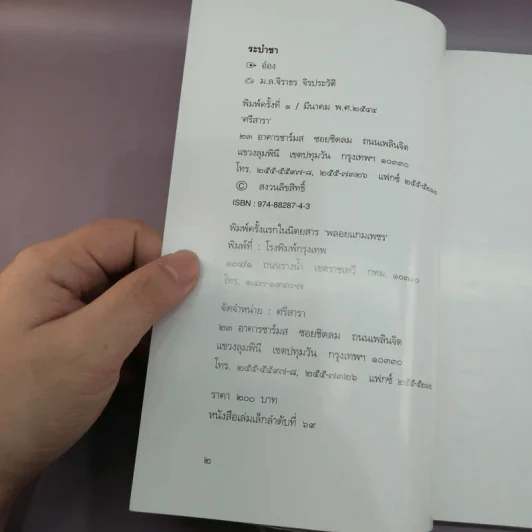 ระบำชา
อ๋อง
ม.ล.จิราธร จิรประวัติ
พิมพ์ครั้งที่ ๑ / มีนาคม พ.ศ.๒๕๔๔
'ศรีสารา'
๒๓ อาคารชาร์มส ซอยชิดลม ถนนเพลินจิต
แขวงลุมพินี เขตปทุมวัน กรุงเทพฯ ๑๐๓๓๐
โทร. ๒๕๕-๕๕๙๗-๘, ๒๕๕-๗๓๒๖ แฟกซ์
© สงวนลิขสิทธิ์
ISBN : 974-88287-4-3
พิมพ์ครั้งแรกในนิตยสาร 'พลอยแกมเพชร'
พิมพ์ที่ : โรงพิมพ์กรุงเทพ
ถนนรางน้ำ เขตราชเทวี กทม.
โทร.
จัดจำหน่าย : ศรีสารา
๒๓ อาคารชาร์มส ซอยชิดลม ถนนเพลินจิต
แขวงลุมพินี เขตปทุมวัน กรุงเทพฯ ๑๐๓๓๐
โทร. ๒๕๕-๕๕๙๗-๘, ๒๕๕-๗๓๒๖ แฟกซ์
ราคา ๒๐๐ บาท
หนังสือเล่มเล็กลำดับที่ ๖๙
๒